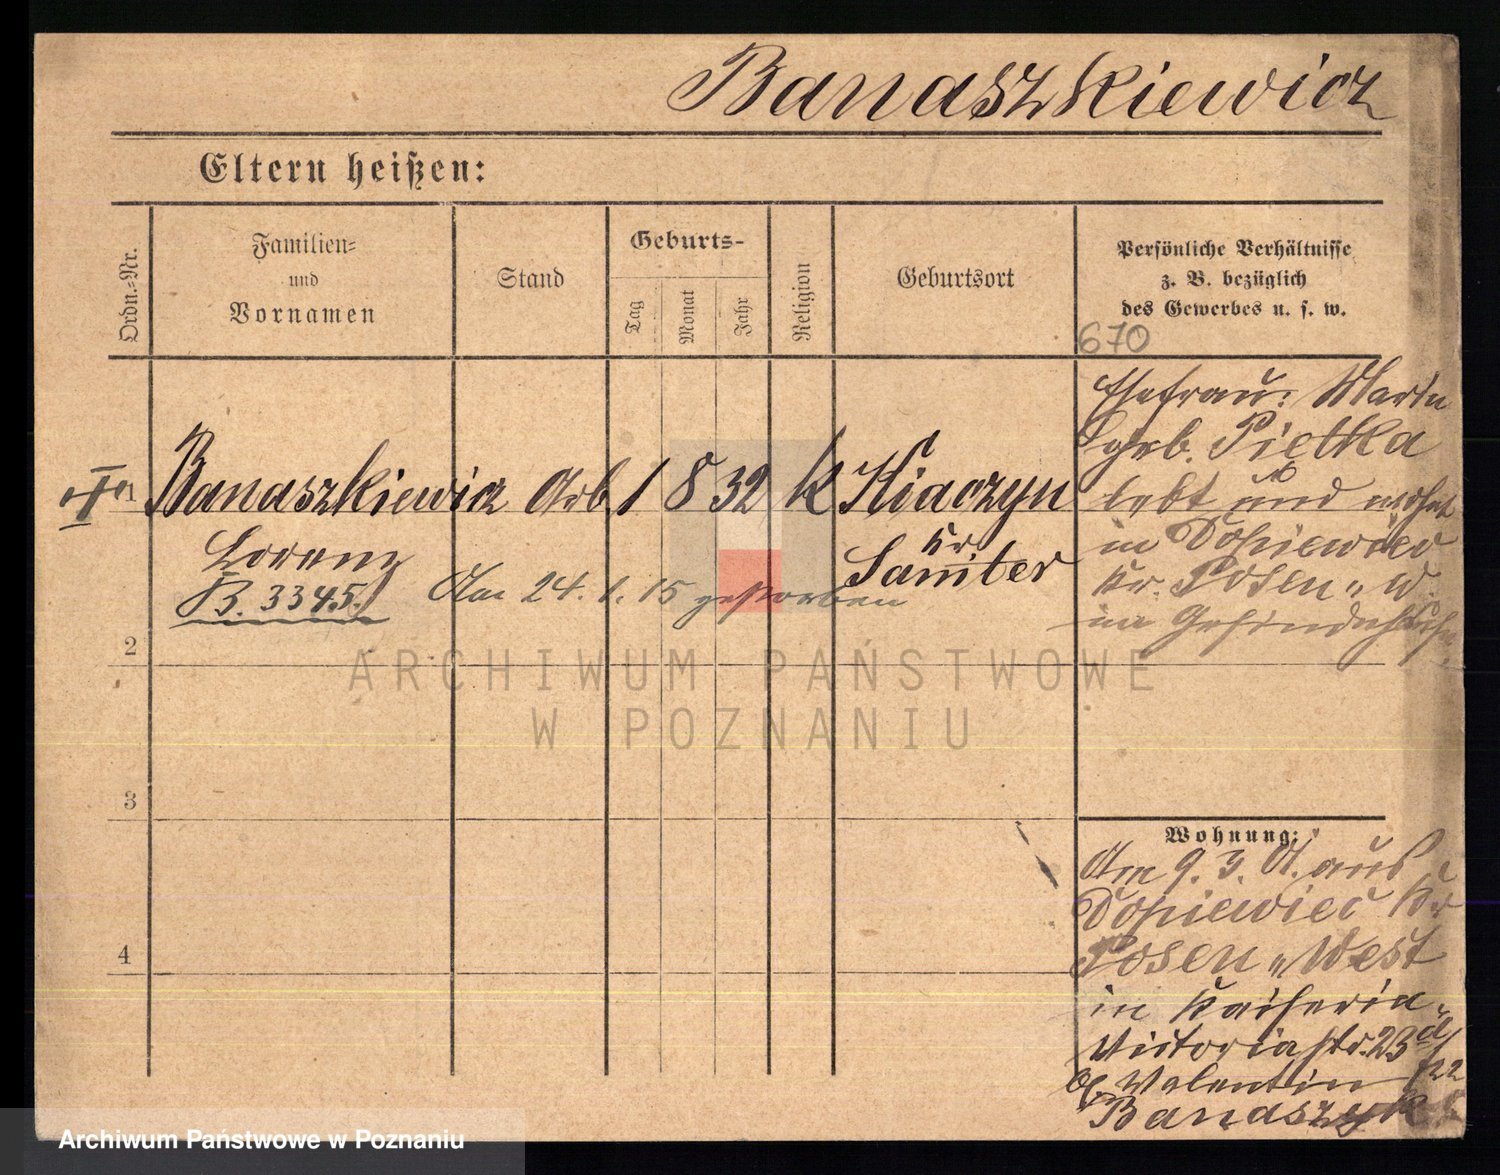 Banaszkiewicz
Eltern heißen:
Ordn.-Nr.
Familien-
und
Vornamen
Stand
Geburts-
Tag
Monat
Jahr
Religion
Geburtsort
Persönliche Verhältnisse
z. B. bezüglich
des Gewerbes u. s. w.
670
1
Banaszkiewicz Arb. 1 8 32 k Kiaczyn
Lorenz
Kr
Samter
B. 3345.
Am 24. 1. 15 gestorben
Ehefrau: Marie
geb. Pietka
lebt und wohnt
in Dopiewiec
Kr. Posen " W.
im
2
ARCHIWUM PAŃSTWOWE
W POZNANIU
3
4
Wohnung:
Am 9. 3. 01. aus
Dopiewiec Kr
Posen " West
in Kaiserin-
Victoriastr. 23
b/ Valentin
Banaszyk
Archiwum Państwowe w Poznaniu